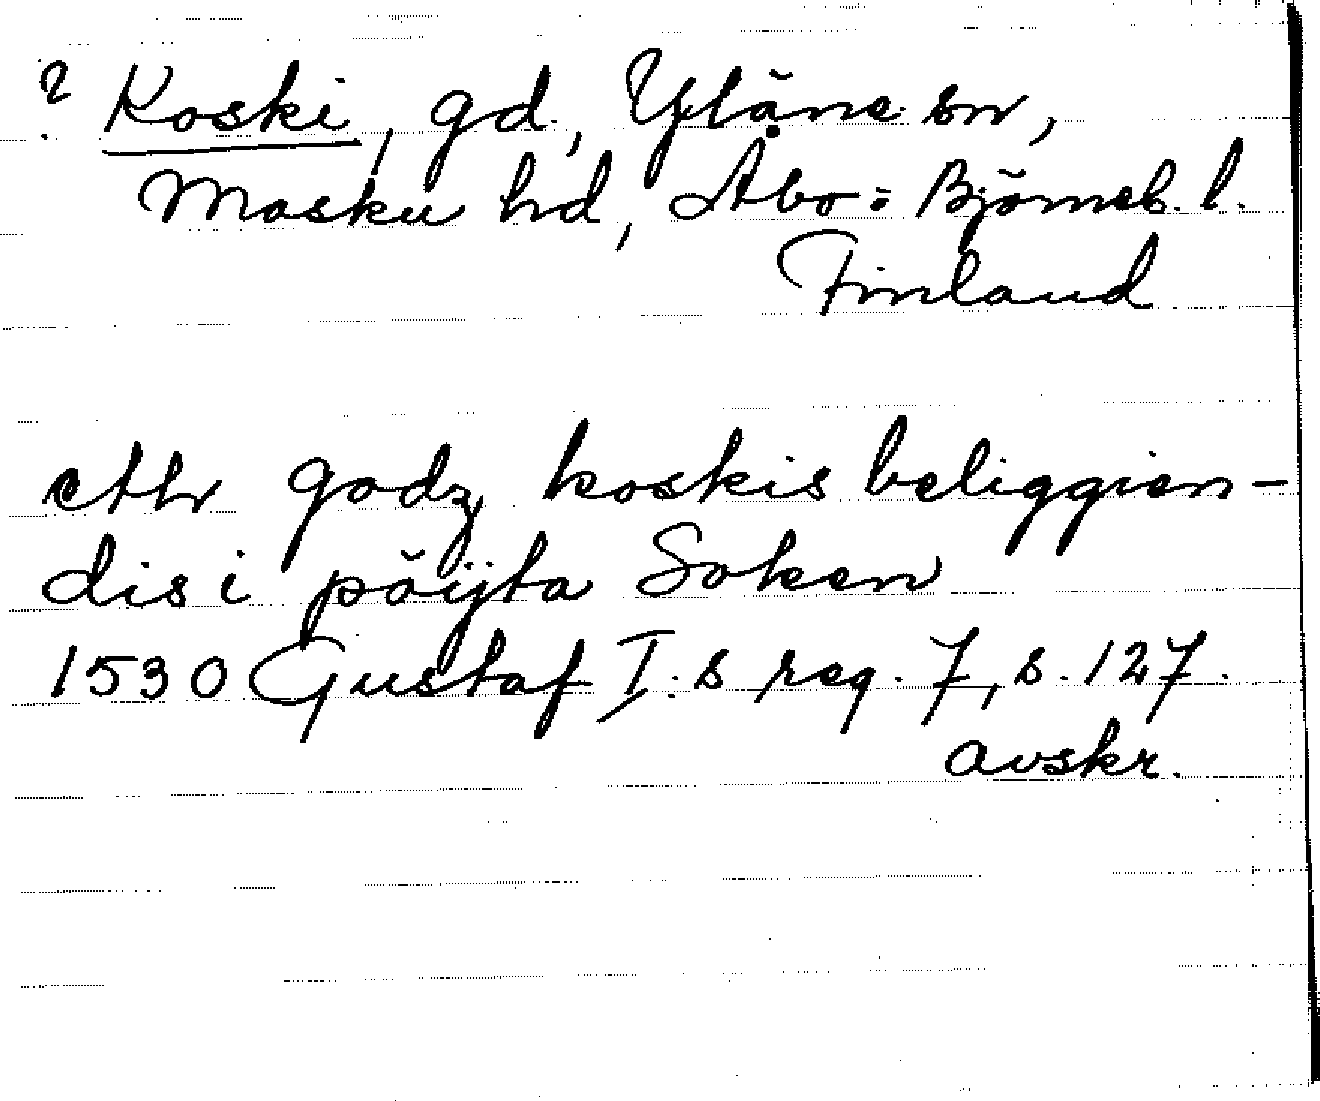 ? Koski, gd, Yläne sn,
Masku hd, Åbo- Björneb. l.
Finland
etth godz koskis beliggien-
dis i pöijta Soken
1530 Gustaf I.s reg. 7, s. 127
avskr.